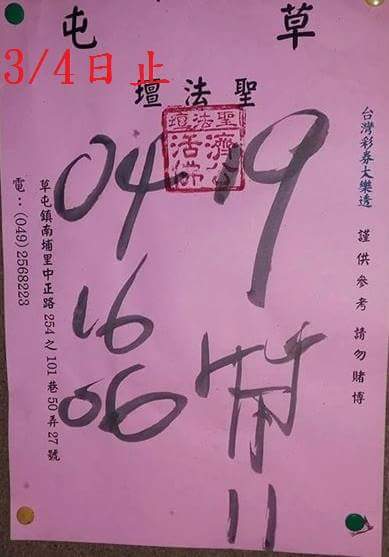 3/4日止
草屯
聖法壇
聖法壇
濟公活佛
台灣彩券大樂透 謹供參考 請勿賭博
19
04
16
06
11
草屯鎮南埔里中正路254之101巷50弄27號
電:(049)2568223